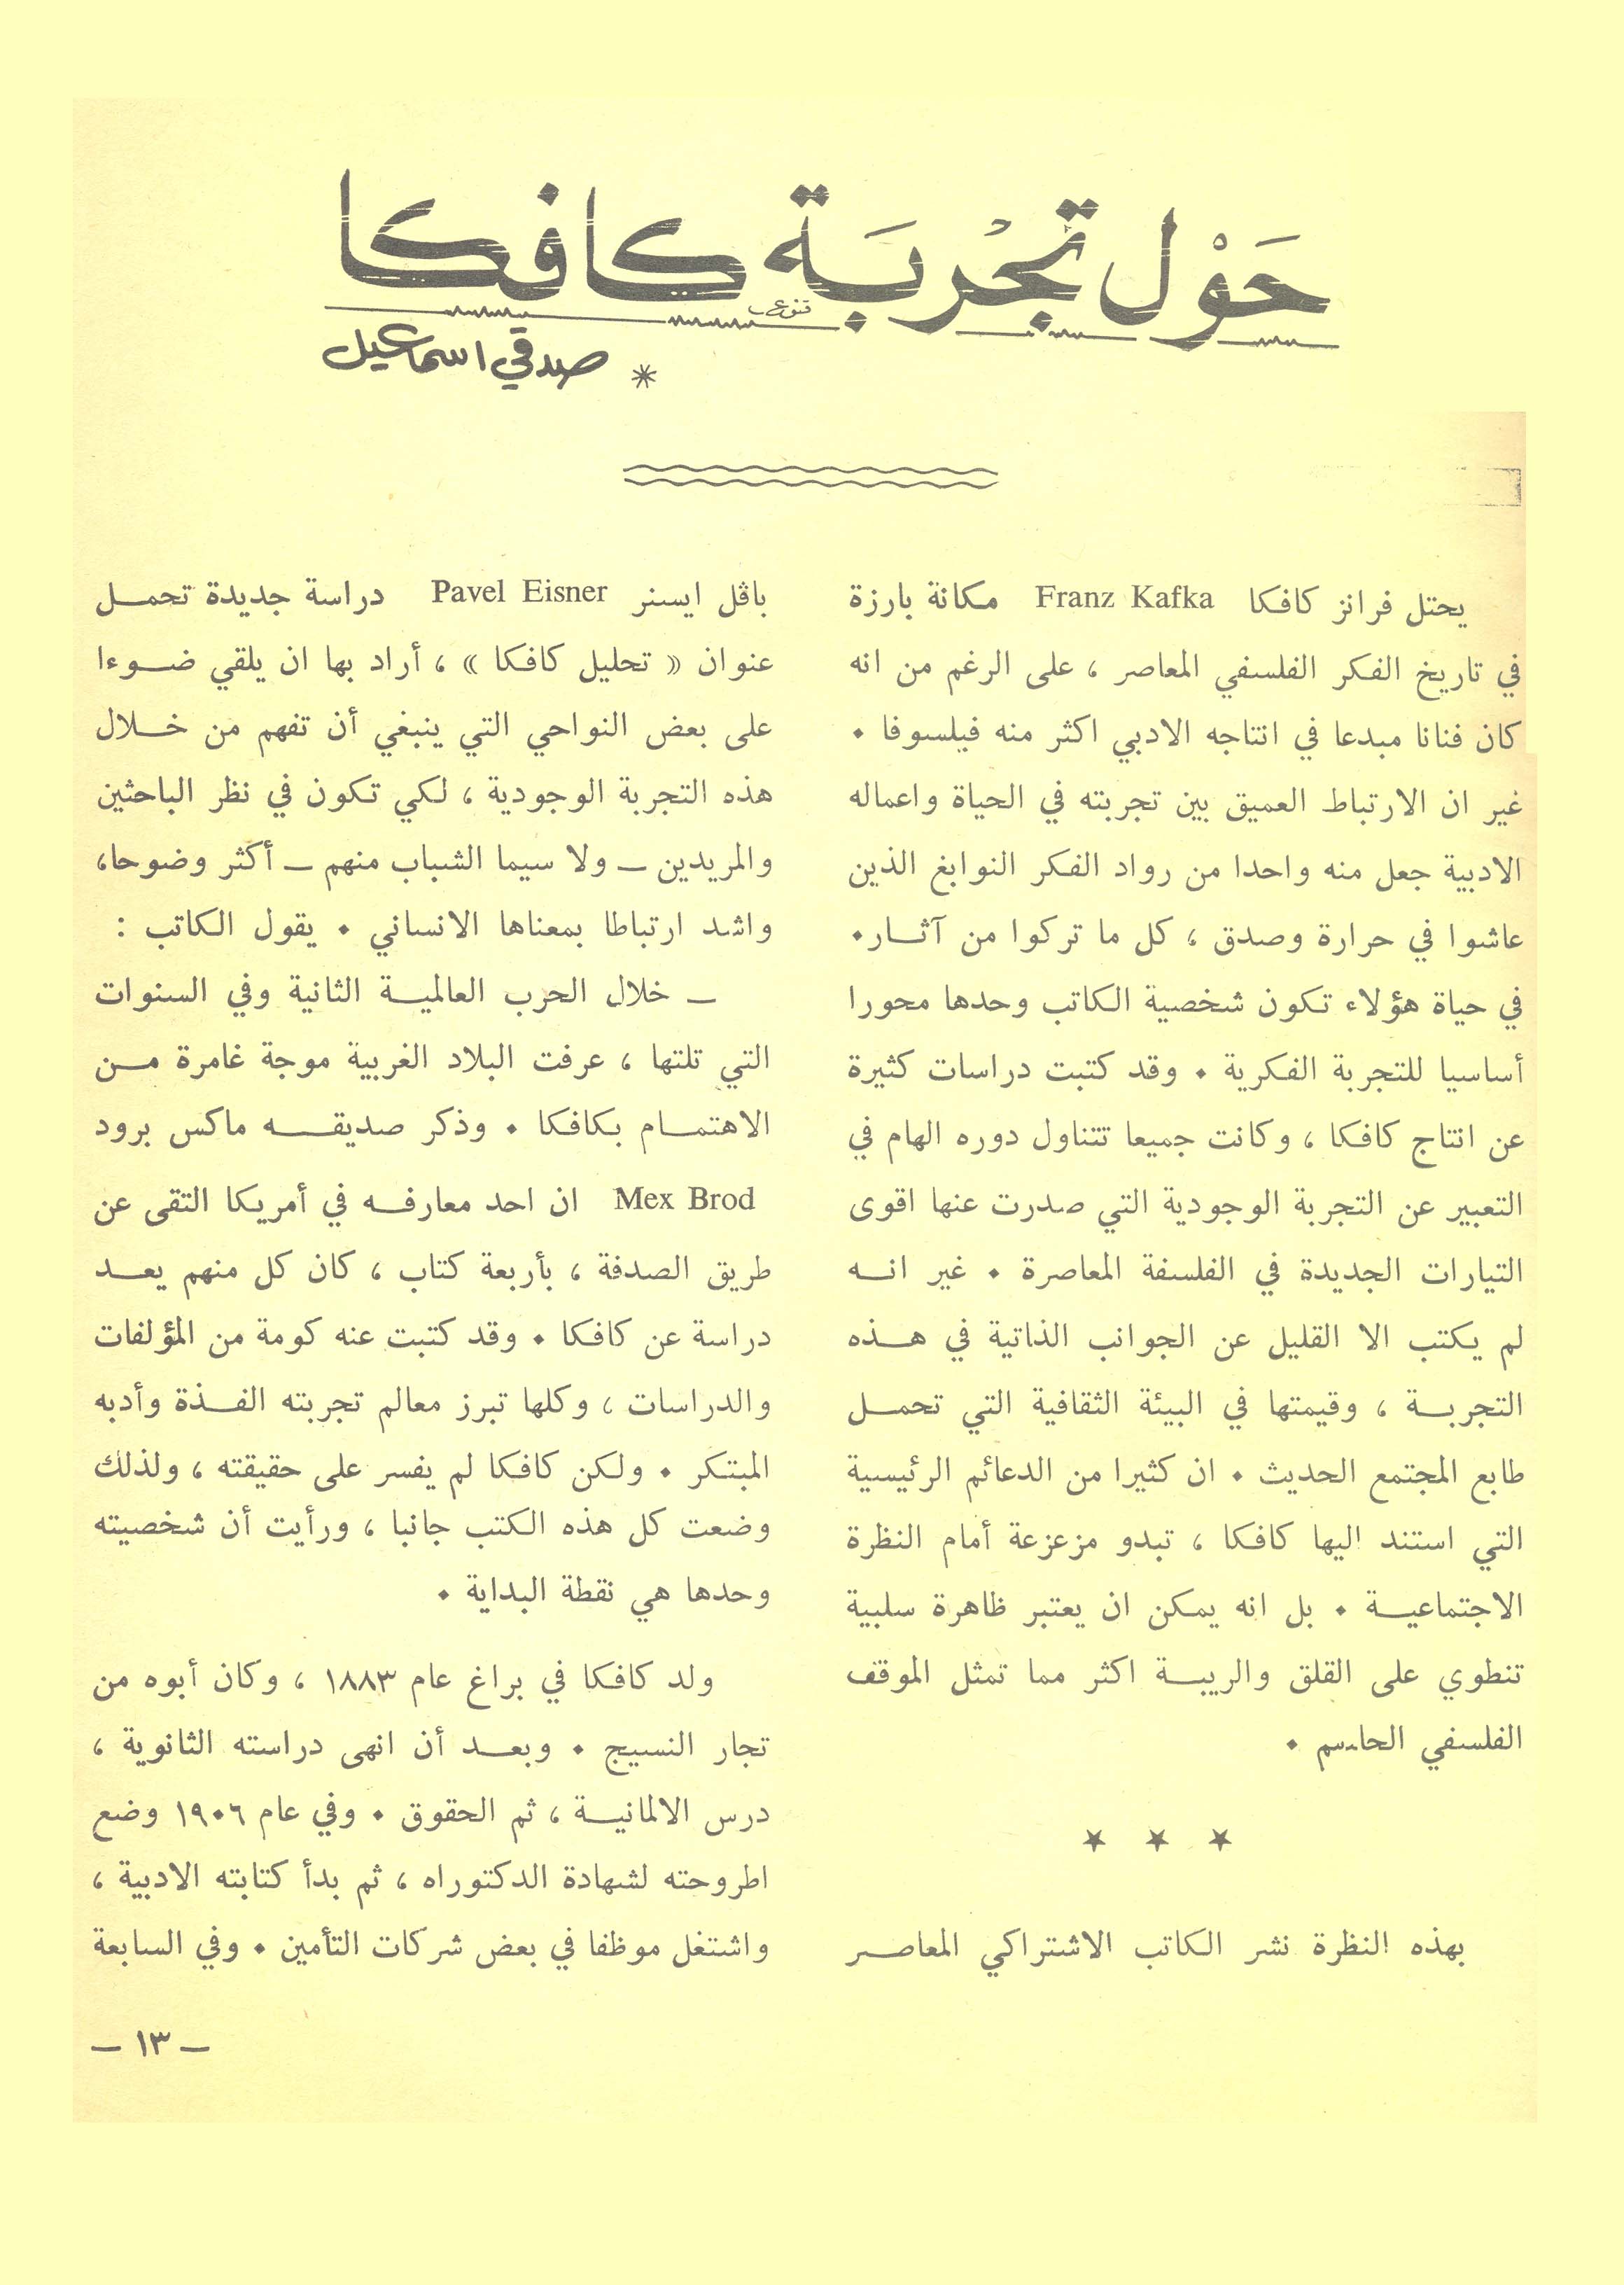 حَوْل تجْربَة كافكا
صدقي اسماعيل *
يحتل فرانز كافكا Franz Kafka مكانة بارزة
في تاريخ الفكر الفلسفي المعاصر ، على الرغم من انه
كان فنانا مبدعا في انتاجه الادبي اكثر منه فيلسوفا ٠
غير ان الارتباط العميق بين تجربته في الحياة واعماله
الادبية جعل منه واحدا من رواد الفكر النوابغ الذين
عاشوا في حرارة وصدق ، كل ما تركوا من آثار٠
في حياة هؤلاء تكون شخصية الكاتب وحدها محورا
أساسيا للتجربة الفكرية ٠ وقد كتبت دراسات كثيرة
عن انتاج كافكا ، وكانت جميعا تتناول دوره الهام في
التعبير عن التجربة الوجودية التي صدرت عنها اقوى
التيارات الجديدة في الفلسفة المعاصرة ٠ غير انه
لم يكتب الا القليل عن الجوانب الذاتية في هذه
التجربة ، وقيمتها في البيئة الثقافية التي تحمل
طابع المجتمع الحديث ٠ ان كثيرا من الدعائم الرئيسية
التي استند اليها كافكا ، تبدو مزعزعة أمام النظرة
الاجتماعية ٠ بل انه يمكن ان يعتبر ظاهرة سلبية
تنطوي على القلق والريبة اكثر مما تمثل الموقف
الفلسفي الحاسم ٠
★ ★ ★
بهذه النظرة نشر الكاتب الاشتراكي المعاصر
باڤل ايسنر Pavel Eisner دراسة جديدة تحمل
عنوان « تحليل كافكا » ، أراد بها ان يلقي ضوءا
على بعض النواحي التي ينبغي أن تفهم من خلال
هذه التجربة الوجودية ، لكي تكون في نظر الباحثين
والمريدين ــ ولا سيما الشباب منهم ــ أكثر وضوحا،
واشد ارتباطا بمعناها الانساني ٠ يقول الكاتب :
ــ خلال الحرب العالمية الثانية وفي السنوات
التي تلتها ، عرفت البلاد الغربية موجة غامرة من
الاهتمام بكافكا ٠ وذكر صديقه ماكس برود
Mex Brod ان احد معارفه في أمريكا التقى عن
طريق الصدفة ، بأربعة كتاب ، كان كل منهم يعد
دراسة عن كافكا ٠ وقد كتبت عنه كومة من المؤلفات
والدراسات ، وكلها تبرز معالم تجربته الفذة وأدبه
المبتكر ٠ ولكن كافكا لم يفسر على حقيقته ، ولذلك
وضعت كل هذه الكتب جانبا ، ورأيت أن شخصيته
وحدها هي نقطة البداية ٠
ولد كافكا في براغ عام ١٨٨٣ ، وكان أبوه من
تجار النسيج ٠ وبعد أن انهى دراسته الثانوية ،
درس الالمانية ، ثم الحقوق ٠ وفي عام ١٩٠٦ وضع
اطروحته لشهادة الدكتوراه ، ثم بدأ كتابته الادبية ،
واشتغل موظفا في بعض شركات التأمين ٠ وفي السابعة
ــ ١٣ ــ